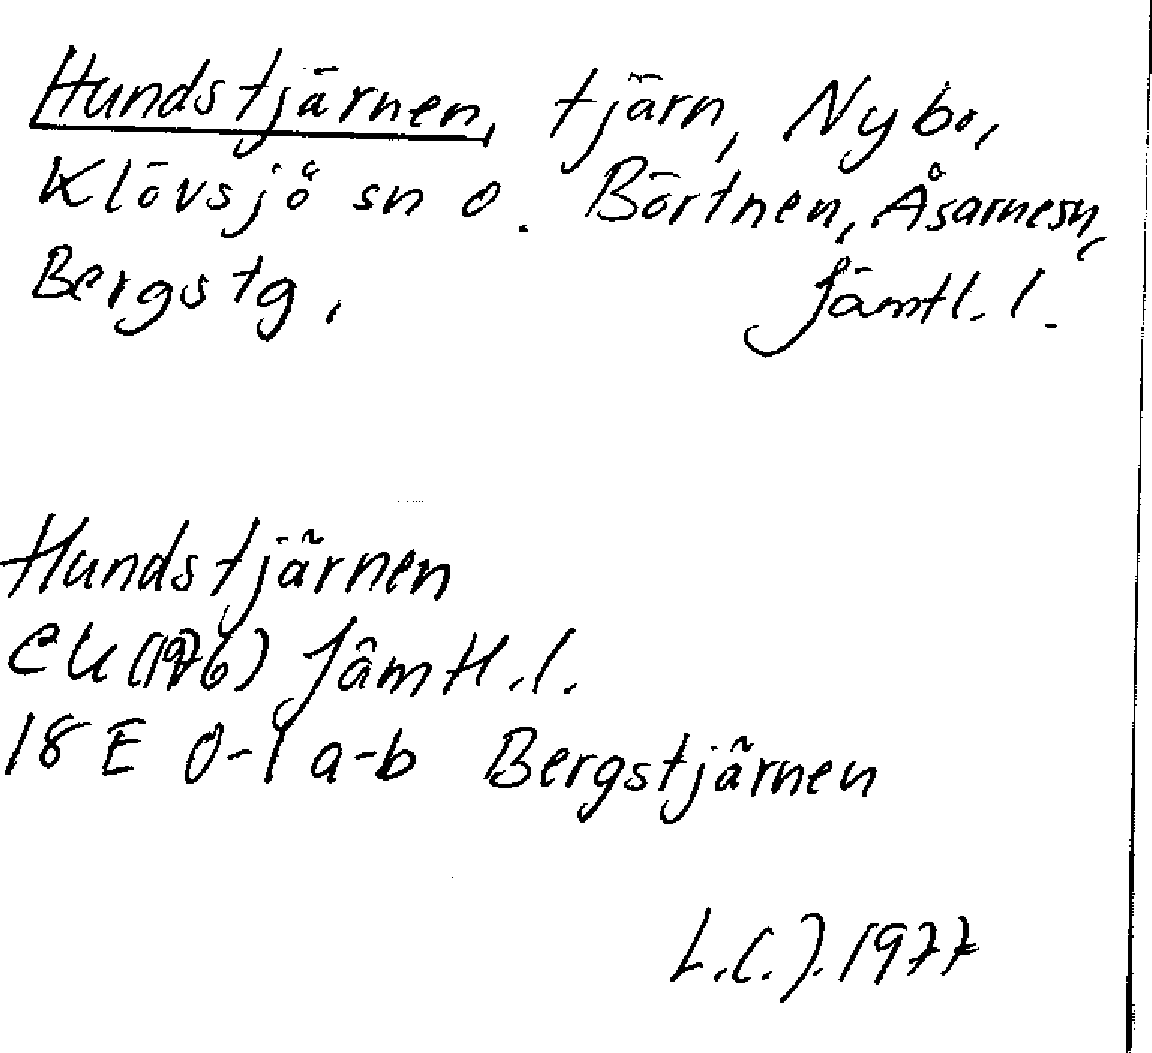 Hundstjärnen, tjärn, Nybo,
Klövsjö sn o. Börtnen, Åsarne sn,
Bergs tg, Jämtl. l.
Hundstjärnen
EK (1976) Jämtl. l.
18 E 0-1 a-b Bergstjärnen
L.C.J. 1977